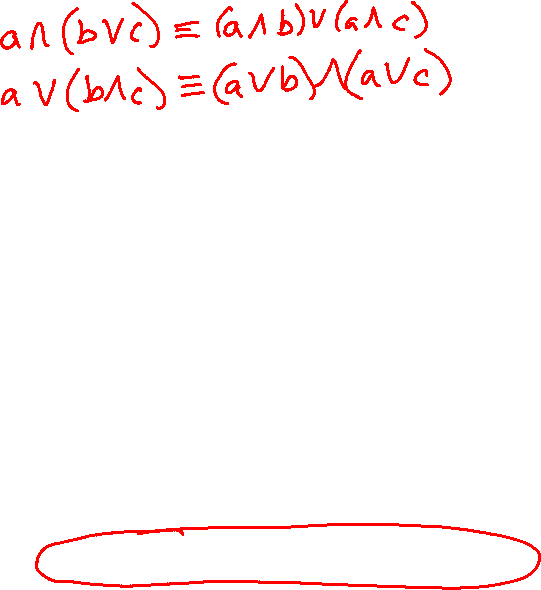 a∧(b∨c)≡(a∧b)∨(a∧c)
a∨(b∧c)≡(a∨b)∧(a∨c)